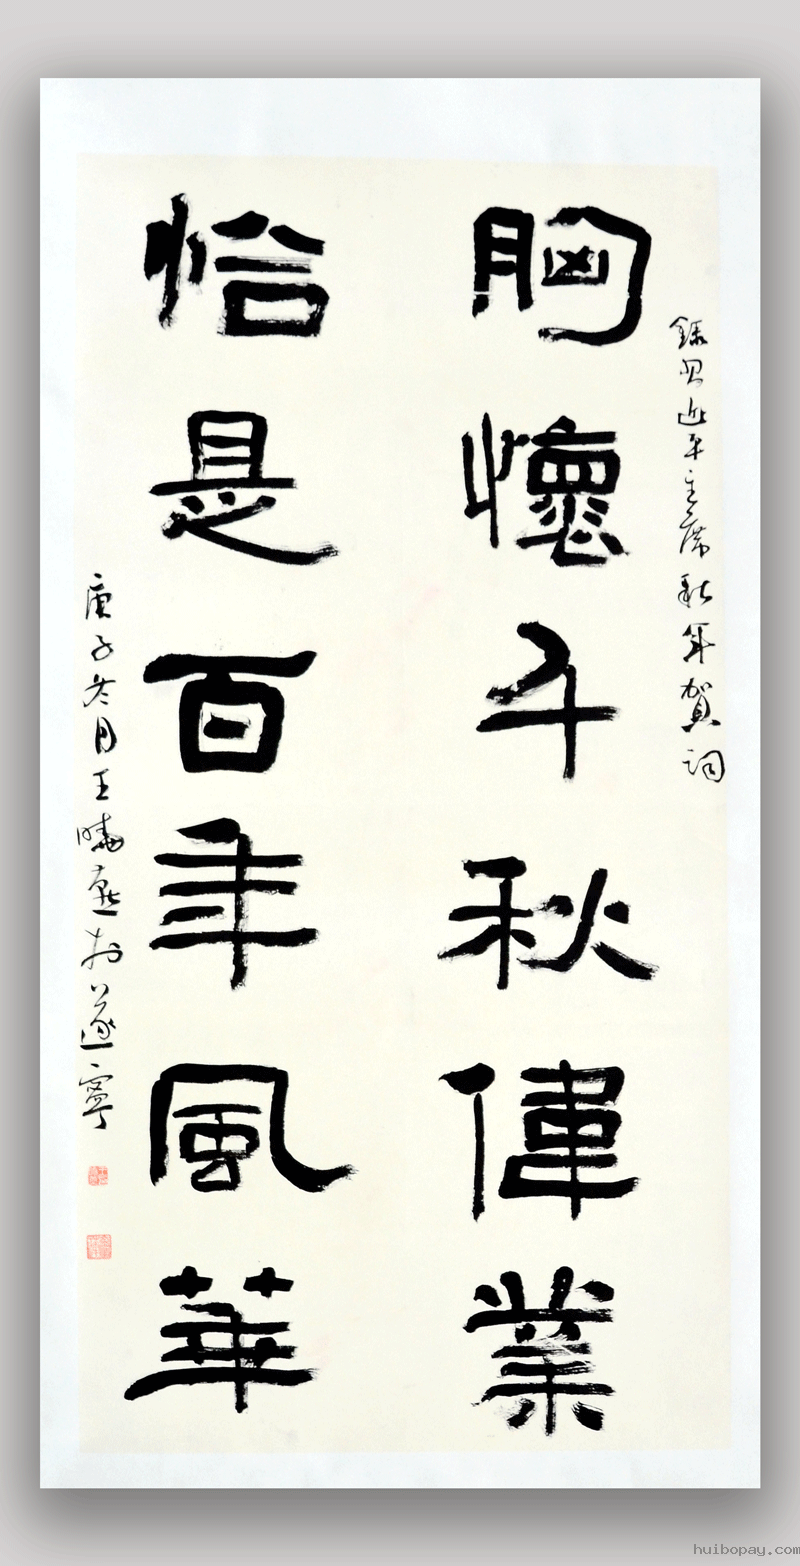 錄习近平主席新年賀詞
胸懷千秋偉業
恰是百年風華
庚子冬月王曉慶於遂寧
huibopay.com